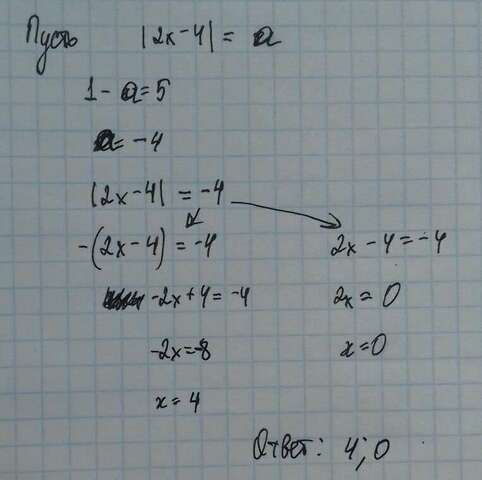 Пусть |2x-4| = a
1 - a = 5
a = -4
|2x-4| = -4
-(2x-4) = -4
2x-4 = -4
-2x+4 = -4
2x = 0
-2x = -8
x = 0
x = 4
Ответ: 4; 0